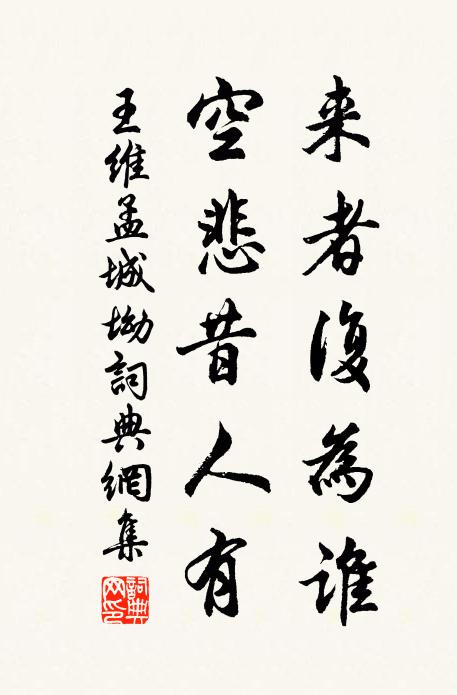 来者復為誰
空悲昔人有
王維孟城坳詞典網集
詞典网印